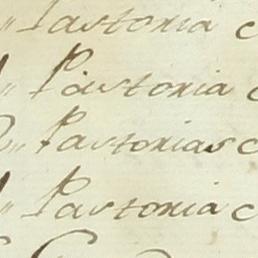 Pastoria
Pastoria
Pastorias
Pastoria